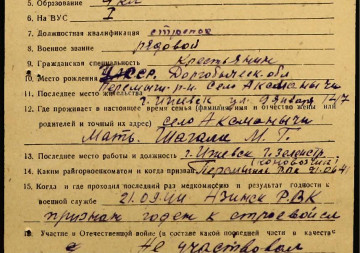 5. Образование 4 кл
6. На ВУС I
7. Должностная квалификация стрелок
8. Военное звание рядовой
9. Гражданская специальность крестьянин
10. Место рождения УССР. обл
Перемыш. р-н. село Аксманычи
11. Последнее место жительства г. Ижевск ул. 9 Января 14/7
12. Где проживает в настоящее время семья (фамилия имя и отчество жены или
родителей и точный их адрес) село Аксманычи
Мать. Шагала М. Т.
13. Последнее место работы и должность г. Ижевск
14. Каким райгорвоенкоматом и когда призван
15. Когда и где проходил последний раз медкомиссию и результат годности к
военной службе 21.09.41 Азинск РВК
признан годен к строевой сл
16. Участие в Отечественной войне (в составе какой последней части и в качестве
Не участвовал